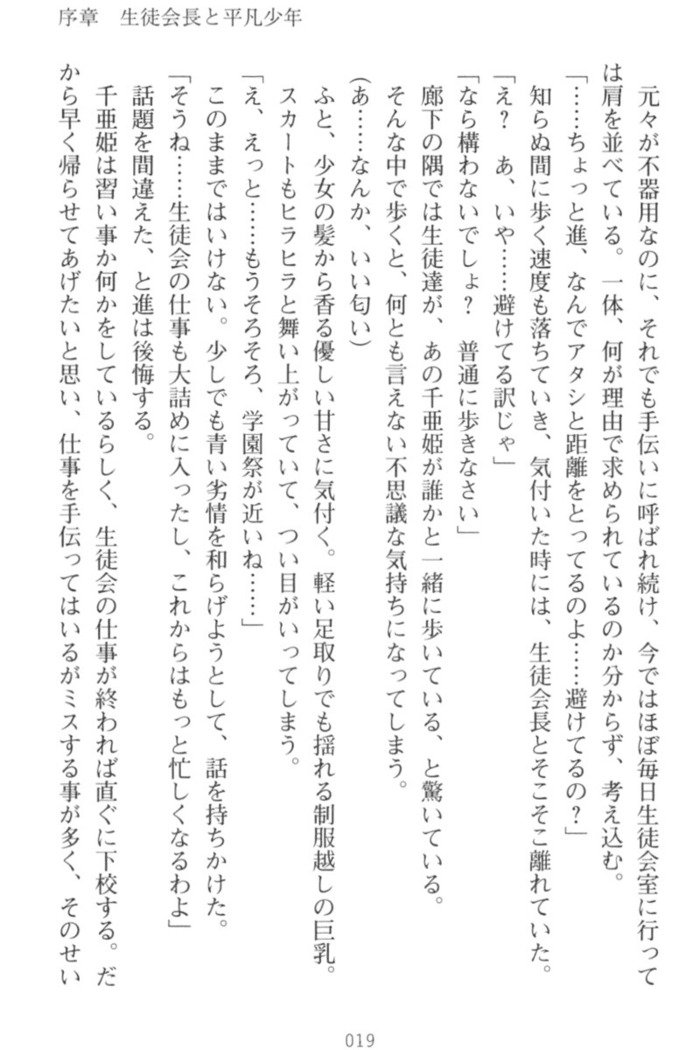 序章　生徒会長と平凡少年
元々が不器用なのに、それでも手伝いに呼ばれ続け、今ではほぼ毎日生徒会室に行って
は肩を並べている。一体、何が理由で求められているのか分からず、考え込む。
「……ちょっと進、なんでアタシと距離をとってるのよ……避けてるの？」
知らぬ間に歩く速度も落ちていき、気付いた時には、生徒会長とそこそこ離れていた。
「え？　あ、いや……避けてる訳じゃ」
「なら構わないでしょ？　普通に歩きなさい」
廊下の隅では生徒達が、あの千亜姫が誰かと一緒に歩いている、と驚いている。
そんな中で歩くと、何とも言えない不思議な気持ちになってしまう。
(あ……なんか、いい匂い)
ふと、少女の髪から香る優しい甘さに気付く。軽い足取りでも揺れる制服越しの巨乳。
スカートもヒラヒラと舞い上がっていて、つい目がいってしまう。
「え、えっと……もうそろそろ、学園祭が近いね……」
このままではいけない。少しでも青い劣情を和らげようとして、話を持ちかけた。
「そうね……生徒会の仕事も大詰めに入ったし、これからはもっと忙しくなるわよ」
話題を間違えた、と進は後悔する。
千亜姫は習い事か何かをしているらしく、生徒会の仕事が終われば直ぐに下校する。だ
から早く帰らせてあげたいと思い、仕事を手伝ってはいるがミスする事が多く、そのせい
019